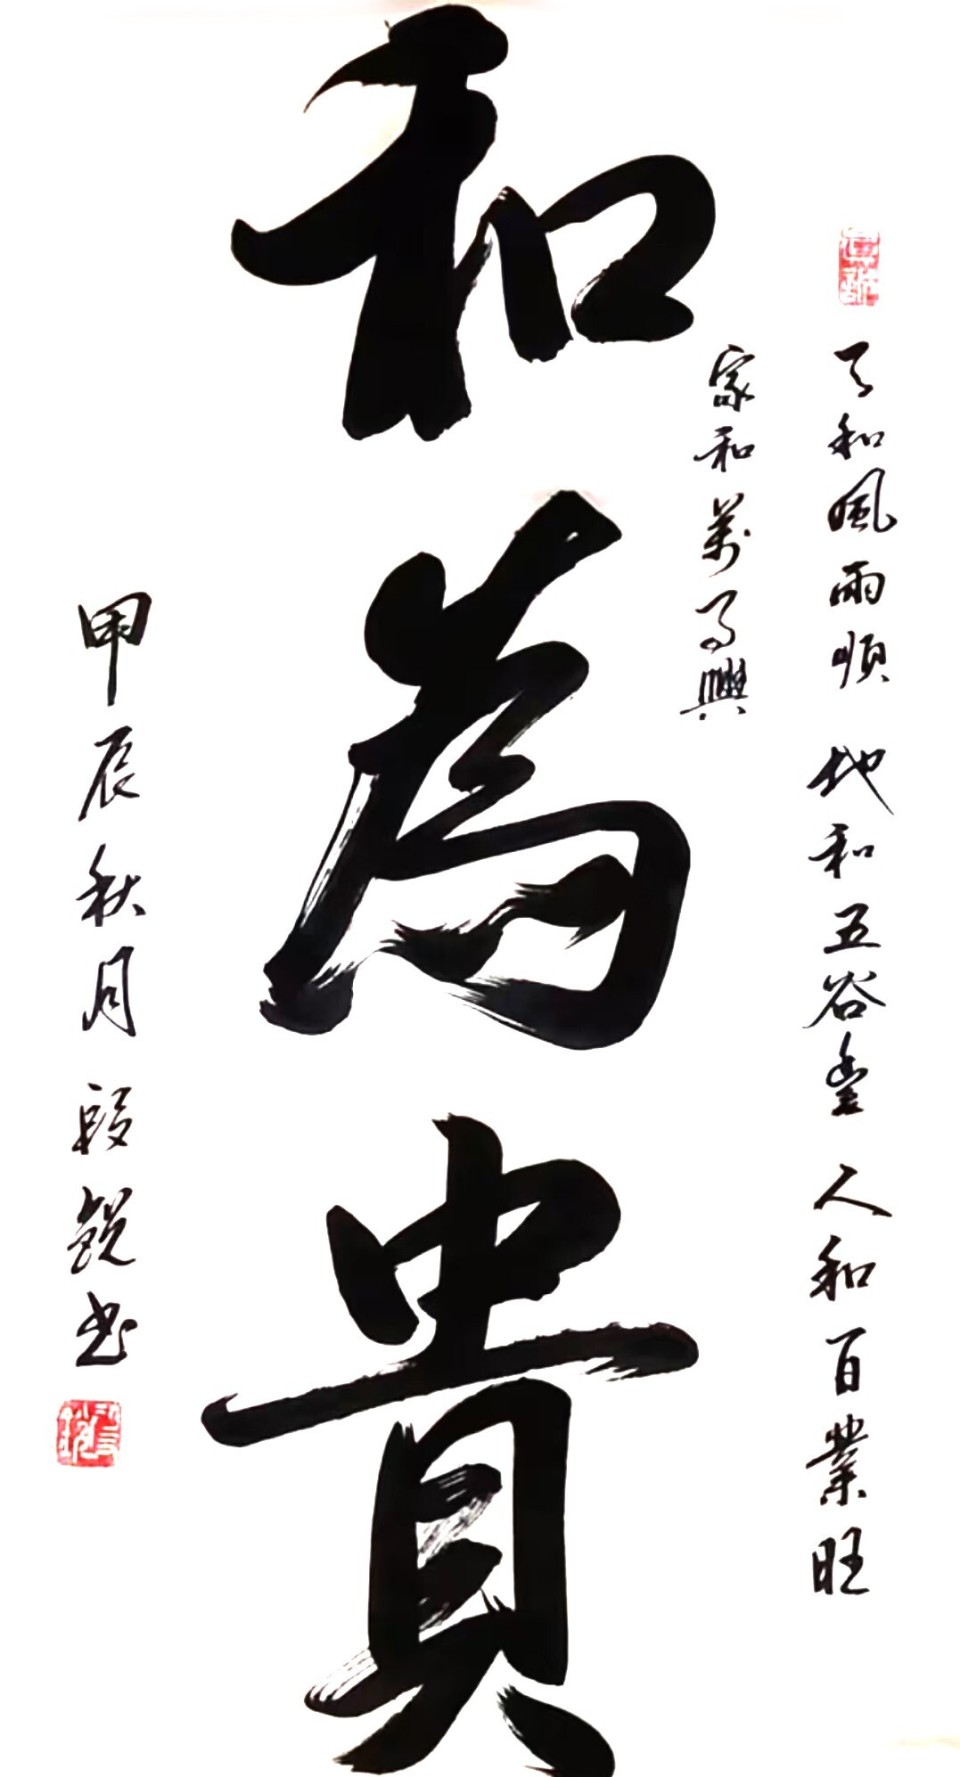 天和風雨順 地和五谷豐 人和百業旺
家和萬事興
和為貴
甲辰秋月 段銳书